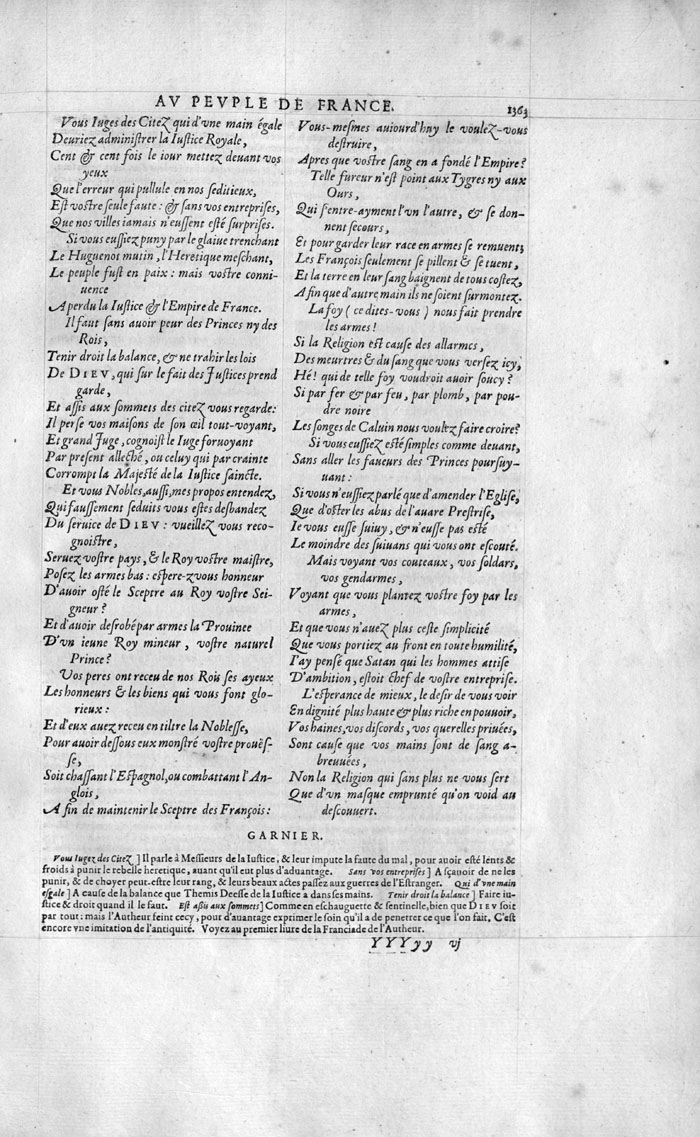 AV PEVPLE DE FRANCE. 1363
Vous Iuges des Citez qui d'vne main égale
Deuriez administrer la Iustice Royale,
Cent & cent fois le iour mettez deuant vos
yeux
Que l'erreur qui pullule en nos seditieux,
Est vostre seule faute: & sans vos entreprises,
Que nos villes iamais n'eussent esté surprises.
Si vous eussiez puny par le glaiue trenchant
Le Huguenot mutin, l'Heretique meschant,
Le peuple fust en paix: mais vostre conni-
uence
A perdu la Iustice & l'Empire de France.
Il faut sans auoir peur des Princes ny des
Rois,
Tenir droit la balance, & ne trahir les lois
De DIEV, qui sur le fait des Justices prend
garde,
Et assis aux sommets des citez vous regarde:
Il perse vos maisons de son œil tout-voyant,
Et grand Juge, cognoist le Iuge foruoyant
Par present alleché, ou celuy qui par crainte
Corrompt la Majesté de la Iustice saincte.
Et vous Nobles, aussi, mes propos entendez,
Qui faussement seduits vous estes desbandez
Du seruice de DIEV: vueillez vous reco-
gnoistre,
Seruez vostre pays, & le Roy vostre maistre,
Posez les armes bas: espere-z vous honneur
D'auoir osté le Sceptre au Roy vostre Sei-
gneur?
Et d'auoir desrobé par armes la Prouince
D'vn ieune Roy mineur, vostre naturel
Prince?
Voz peres ont receu de nos Rois ses ayeux
Les honneurs & les biens qui vous font glo-
rieux:
Et d'eux auez receu en tiltre la Noblesse,
Pour auoir dessous eux monstré vostre prouës-
se,
Soit chassant l'Espagnol, ou combattant l'An-
glois,
A fin de maintenir le Sceptre des François:
Vous-mesmes aujourd'huy le voulez-vous
destruire,
Apres que vostre sang en a fondé l'Empire?
Telle fureur n'est point aux Tygres ny aux
Ours,
Qui s'entre-ayment l'vn l'autre, & se don-
nent secours,
Et pour garder leur race en armes se remuent;
Les François seulement se pillent & se tuent,
Et la terre en leur sang baignent de tous costez,
A fin que d'autre main ils ne soient surmontez.
La foy (ce dites-vous) nous fait prendre
les armes!
Si la Religion est cause des allarmes,
Des meurtres & du sang que vous versez icy,
Hé! qui de telle foy voudroit auoir soucy?
Si par fer & par feu, par plomb, par pou-
dre noire
Les songes de Caluin nous voulez faire croire?
Si vous eussiez esté simples comme deuant,
Sans aller les faueurs des Princes poursuy-
uant:
Si vous n'eussiez parlé que d'amender l'Eglise,
Que d'oster les abus de l'auare Prestrise,
Ie vous eusse suiuy, & n'eusse pas esté
Le moindre des suiuans qui vous ont escouté.
Mais voyant vos couteaux, vos soldars,
vos gendarmes,
Voyant que vous plantez vostre foy par les
armes,
Et que vous n'auez plus ceste simplicité
Que vous portiez au front en toute humilité,
I'ay pensé que Satan qui les hommes attise
D'ambition, estoit chef de vostre entreprise.
L'esperance de mieux, le desir de vous voir
En dignité plus haute & plus riche en pouuoir,
Vos haines, vos discords, vos querelles priuées,
Sont cause que vos mains sont de sang a-
breuuées,
Non la Religion qui sans plus ne vous sert
Que d'vn masque emprunté qu'on void au
descouuert.
GARNIER.
Vous Iugez des Citez] Il parle à Messieurs de la Iustice, & leur impute la faute du mal, pour auoir esté lents &
froids à punir le rebelle heretique, auant qu'il eut plus d'aduantage. Sans vos entreprises] A sçauoir de ne les
punir, & de choyer peut-estre leur rang, & leurs beaux actes passez aux guerres de l'Estranger. Qui d'vne main
esgale] A cause de la balance que Themis Deesse de la Iustice a dans ses mains. Tenir droit la balance] Faire iu-
stice & droit quand il le faut. Est assis aux sommets] Comme en eschauguette & sentinelle, bien que DIEV soit
par tout: mais l'Autheur feint cecy, pour d'auantage exprimer le soin qu'il a de penetrer ce que l'on fait. C'est
encore vne imitation de l'antiquité. Voyez au premier liure de la Franciade de l'Autheur.
YYYyy vj